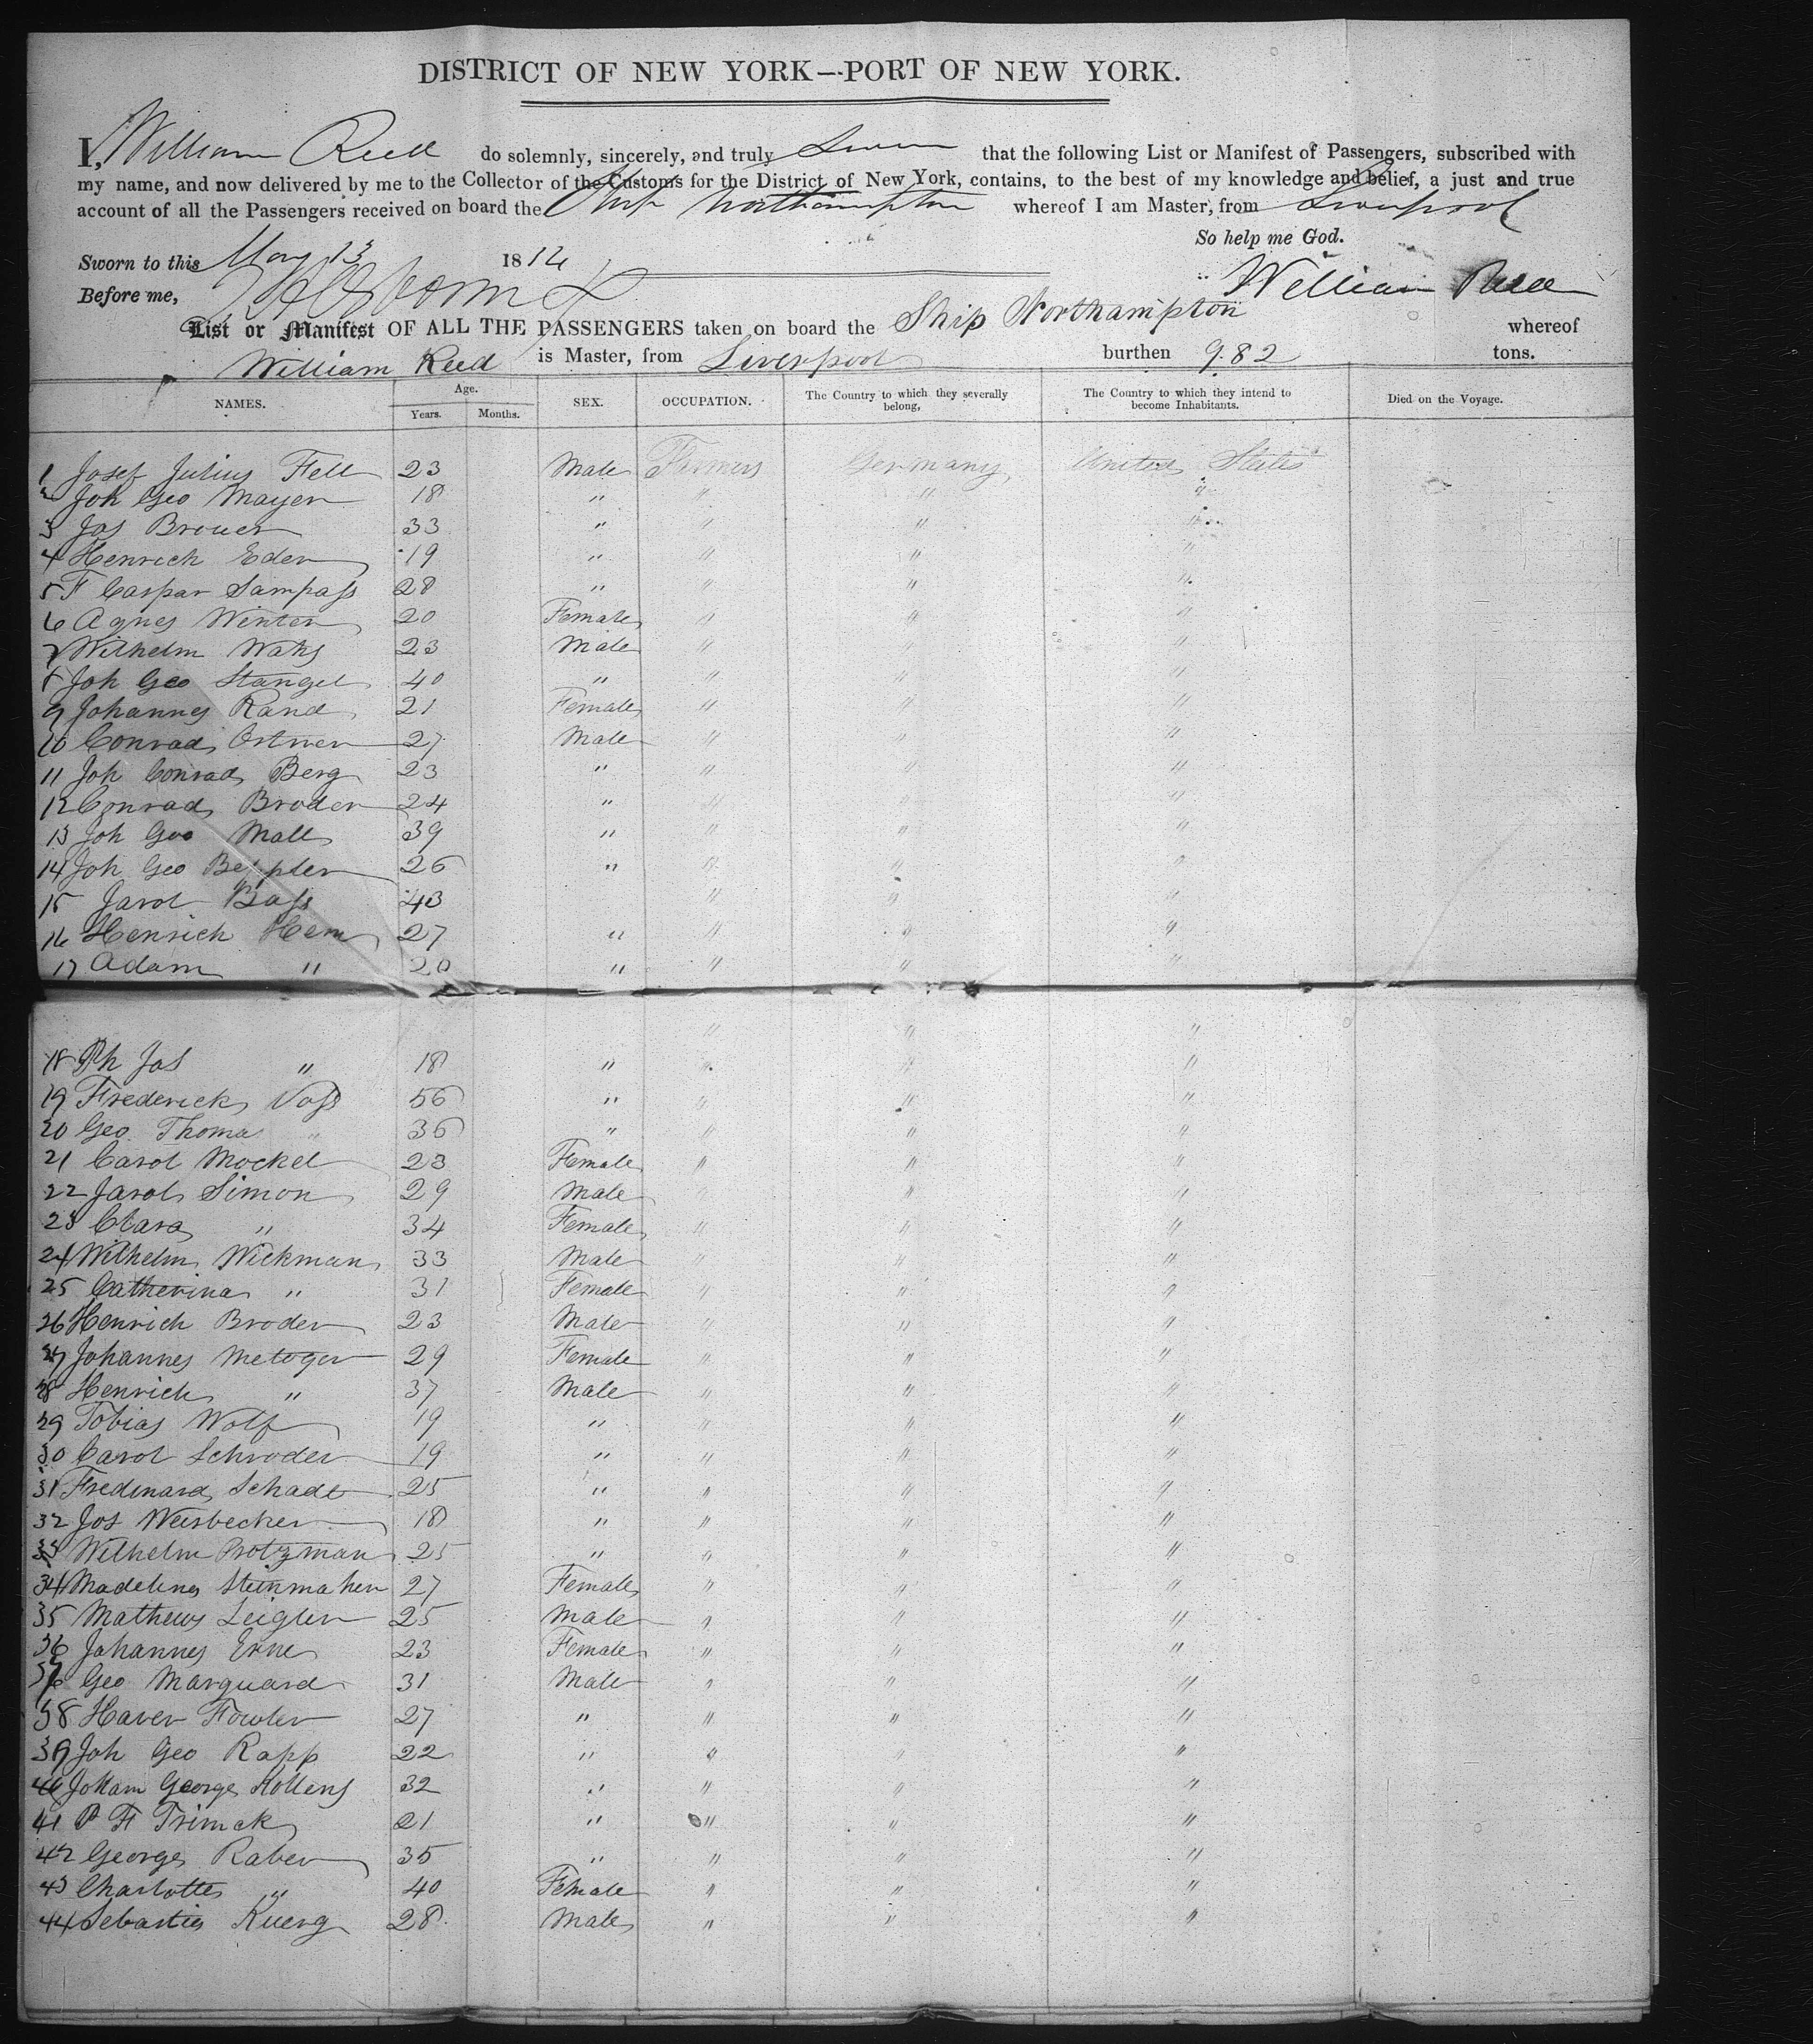 DISTRICT OF NEW YORK—PORT OF NEW YORK.
I, William Reed do solemnly, sincerely, and truly Swear that the following List or Manifest of Passengers, subscribed with
my name, and now delivered by me to the Collector of the Customs for the District of New York, contains, to the best of my knowledge and belief, a just and true
account of all the Passengers received on board the Ship Northampton whereof I am Master, from Liverpool
So help me God.
Sworn to this May 13 18
Before me, William Reed
List or Manifest OF ALL THE PASSENGERS taken on board the Ship Northampton whereof
William Reed is Master, from Liverpool burthen 982 tons.
NAMES. Age. Years. Months. SEX. OCCUPATION. The Country to which they severally belong, The Country to which they intend to become Inhabitants. Died on the Voyage.
1 Josef Julius Fell 23 Male Farmers Germany United States
2 Joh Geo Mayer 18 " " " "
3 Jos Brouer 33 " " " "
4 Henrich Eder 19 " " " "
5 F Caspar Sampass 28 " " " "
6 Agnes Winter 20 Female " " "
7 Wilhelm Waks 23 Male " " "
8 Joh Geo Stangel 40 " " " "
9 Johannes Rand 21 Female " " "
10 Conrad Ortner 27 Male " " "
11 Joh Conrad Berg 23 " " " "
12 Conrad Broder 24 " " " "
13 Joh Geo Mall 39 " " " "
14 Joh Geo 26 " " " "
15 Jarol Bass 43 " " "
16 Henrich Hem 27 " " " "
17 Adam " 20 " " " "
" " "
18 Ph Jos " 18 " " " "
19 Frederick Voss 56 " " " "
20 Geo Thoma " 36 " " " "
21 Carol Mockel 23 Female " " "
22 Jarol Simon 29 Male " " "
23 Clara " 34 Female " " "
24 Wilhelm Wickman 33 Male " " "
25 Catherina " 31 Female " " "
26 Henrich Broder 23 Male " " "
27 Johannes Metoger 29 Female " " "
28 Henrich " 37 Male " " "
29 Tobias Wolf 19 " " " "
30 Carol Schroder 19 " " " "
31 Fredinard Schadt 25 " " " "
32 Jos Weisbecker 18 " " " "
33 Wilhelm Protzman 25 " " " "
34 Madelina Steinmaher 27 Female " " "
35 Mathews Leigler 25 Male " " "
36 Johannes Erne 23 Female " " "
37 Geo Marquard 31 Male " " "
38 Haver Fowler 27 " " " "
39 Joh Geo Rapp 22 " " " "
40 Joham George Kollens 32 " " " "
41 P F Trimck 21 " " " "
42 George Raber 35 " " " "
43 Charlotte " 40 Female " " "
44 Sebastia Kuerg 28 Male " " "